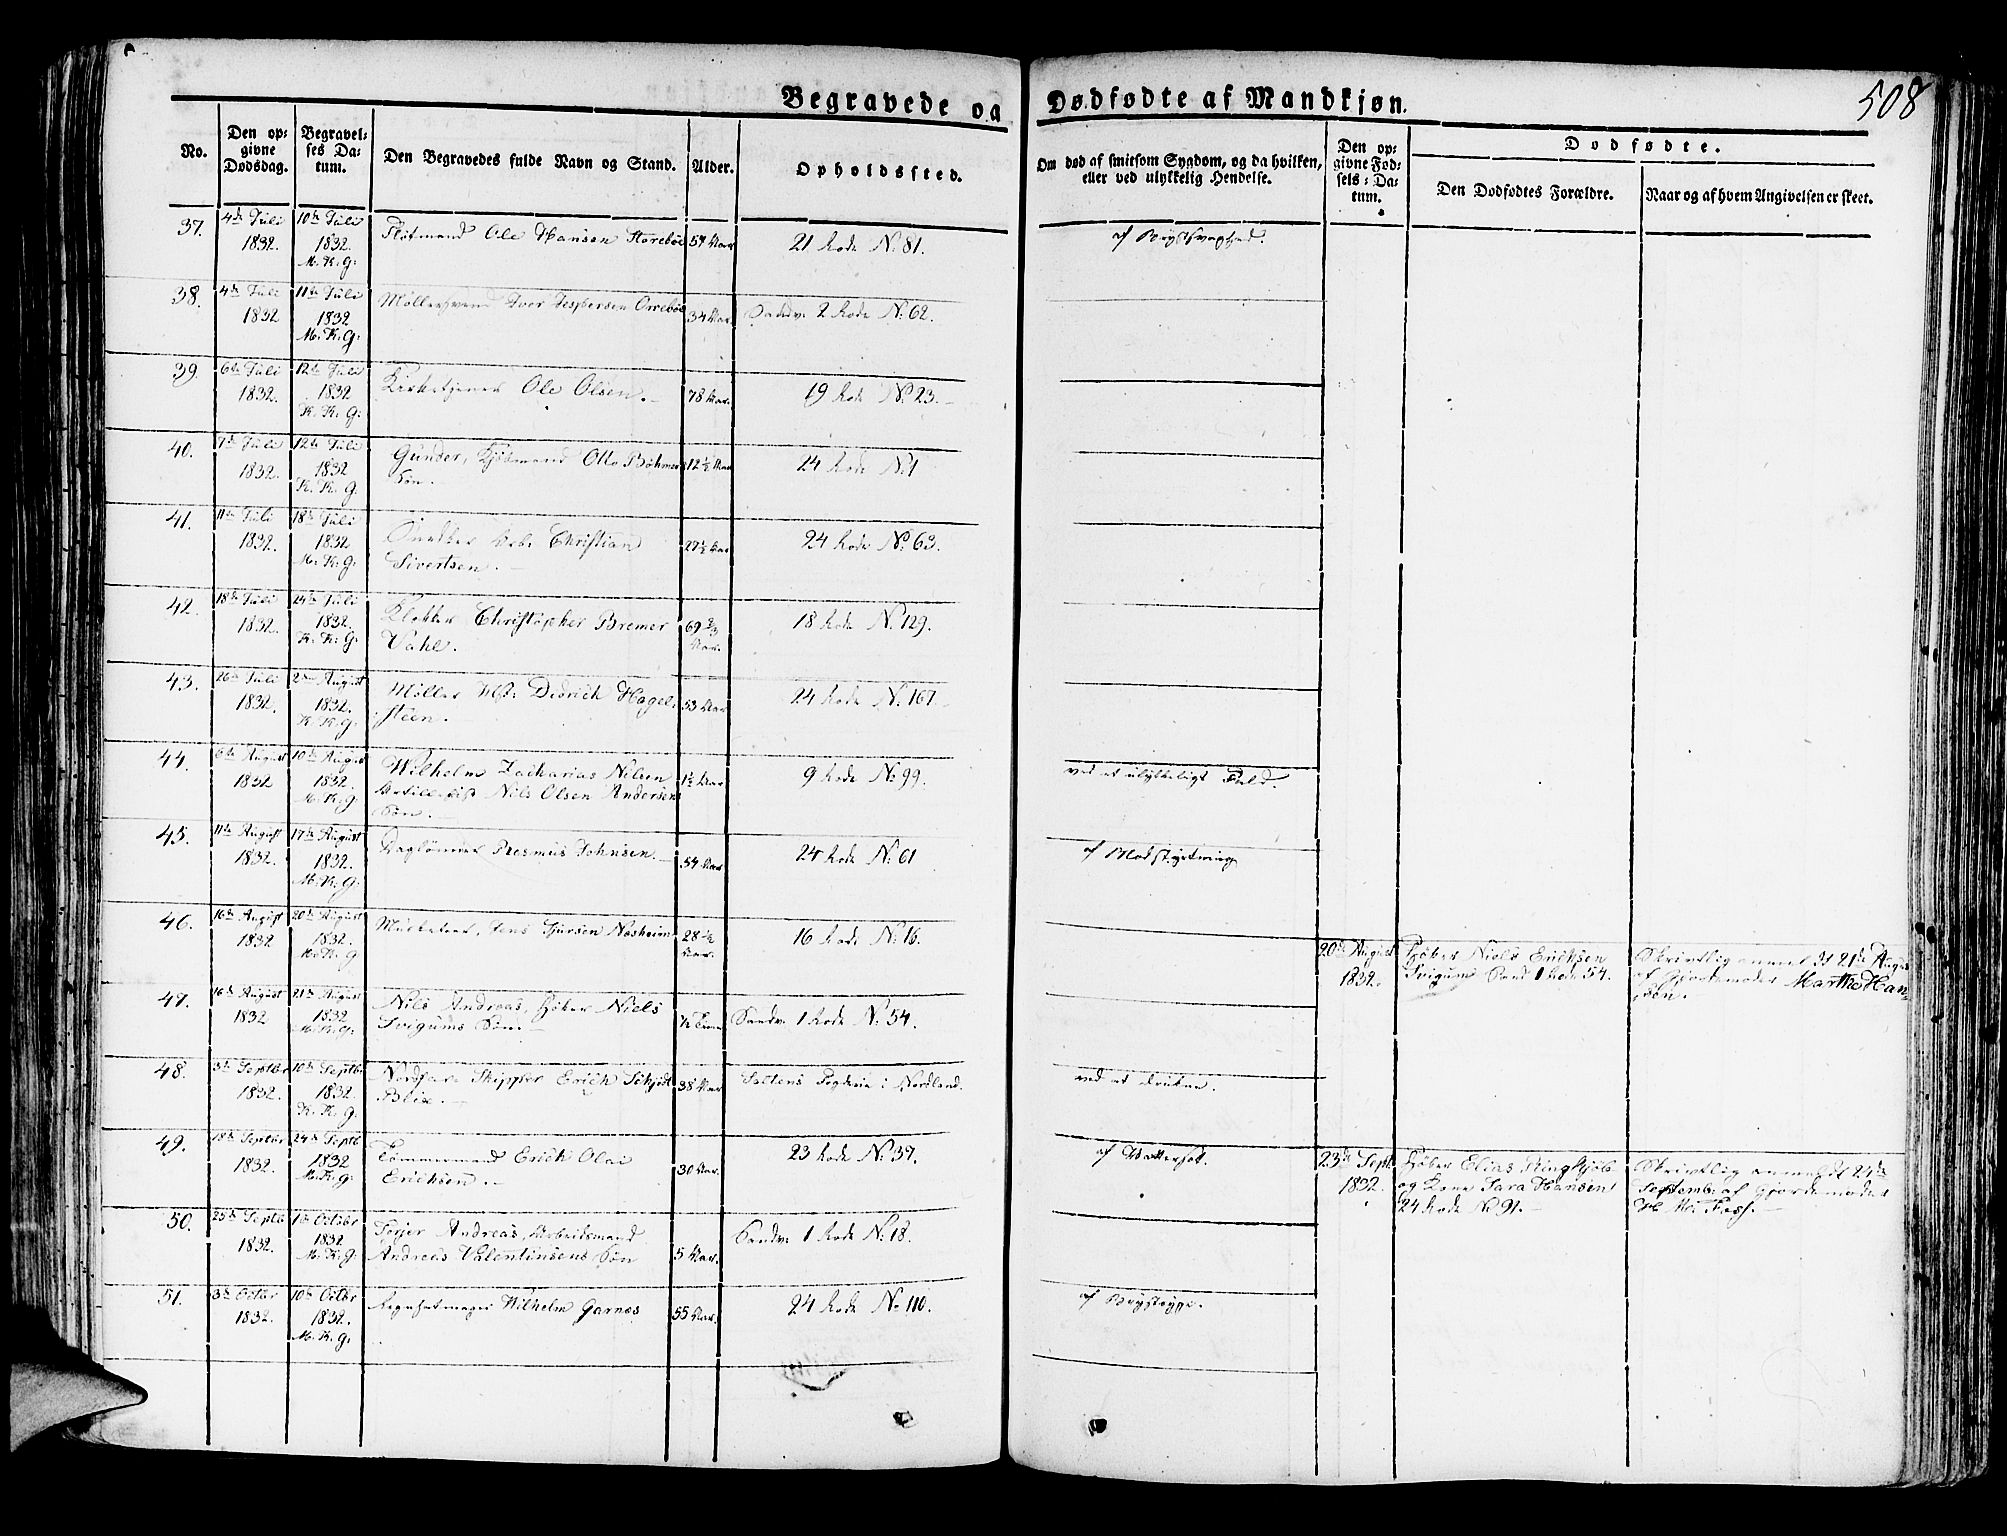 508
Begravede og Dødfødte af Mandkjøn.
No.
Den opgivne Dødsdag.
Begravelses Datum.
Den Begravedes fulde Navn og Stand.
Alder.
Opholdssted.
Om død af smitsom Sygdom, og da hvilken,
eller ved ulykkelig Hendelse.
Den opgivne Fødsels-Datum.
Dødfødte.
Den Dødfødtes Forældre.
Naar og af hvem Angivelsen er skeet.
37. 4de Juli 1832. 10de Juli 1832. M. K. G: Ole Hansen Storebøe 57 Aar 21 Rode No. 81. af Brystsvaghed.
38. 4de Juli 1832 11te Juli 1832 M. K. G: Møllersvend Iver Jespersen Orrebøe 34 Aar. Sandv. 2 Rode No. 62.
39. 6te Juli 1832. 12te Juli 1832 K. K. G: Kirketjener Ole Olsen. 78 Aar. 19 Rode No. 23.
40. 7de Juli 1832. 12te Juli 1832 K. K. G. Gunder, Kjøbmand Otto Böhmers
Søn. 12½ Aar 24 Rode No. 1
41. 11te Juli 1832. 18de Juli 1832 M. K. G. Christian
Sivertsen. 27½ Aar 24 Rode No. 63.
42. 18de Juli 1832. 24de Juli 1832. K. K. G: Klokker Christopher Bremer
Vahl. 69 2/3 Aar. 18 Rode No. 129.
43. 26de Juli 1832. 2den August 1832. K. K. G: Møller Didrich Hagel-
steen. 53 Aar 24 Rode No. 167
44. 6te August 1832 10de August 1832. M. K. G. Wilhelm Zacharias Nilsen
Artillerist Nils Olsen Andersens
Søn. 1½ Aar 9 Rode No. 99. ved et ulykkeligt Fald.
45. 11te August 1832. 17de August 1832. M. K. G. Daglønner Rasmus Johnsen. 54 Aar 24 Rode No. 61
46. 16de August 1832 20de August 1832. M. K. G Musketeer, Jens Næsheim 28½ Aar. 16 Rode No. 16.
20de August 1832. Høker Niels Erichsen
Svigum Sand 1 Rode 54. Skrivtlig anmeldt 21de August
af Gjordemoder Marthe Han-
sen.
47. 16de August 1832 21de August 1832 M. K. G: Nils Andreas, Høker Niels
Svigums Søn. Sandv. 1 Rode No. 54.
48. 3de Septbr 1832. 10de Septbr 1832. K. K. G. Skipper Erich Schjelt
Blix. 38 Aar Saltens Fogderie i Nordland. ved at drukne.
49. 18de Septbr 1832. 24de Septb 1832 M. K. G: Tømmermand Erich Olai
Erichsen. 30 Aar. 23 Rode No. 37. af Vattersot.
23de Sept. 1832. Høker Elias Ringhjøb
og Kone Sara Hansen
24 Rode No. 91. Skrivtlig anmeldt 24de
Septemb: af Gjordemoder
50. 25de Septb 1832. 1te Octobr 1832. M. K. G. Andreas, Arbeidsmand
Andreas Valentinsens Søn 5 Aar. Sandv. 1 Rode No. 18.
51. 3de Octbr 1832. 10de Octbr 1832. M. K. G: Wilhelm Garnæs 55 Aar. 24 Rode No. 110. af Brystsyge.